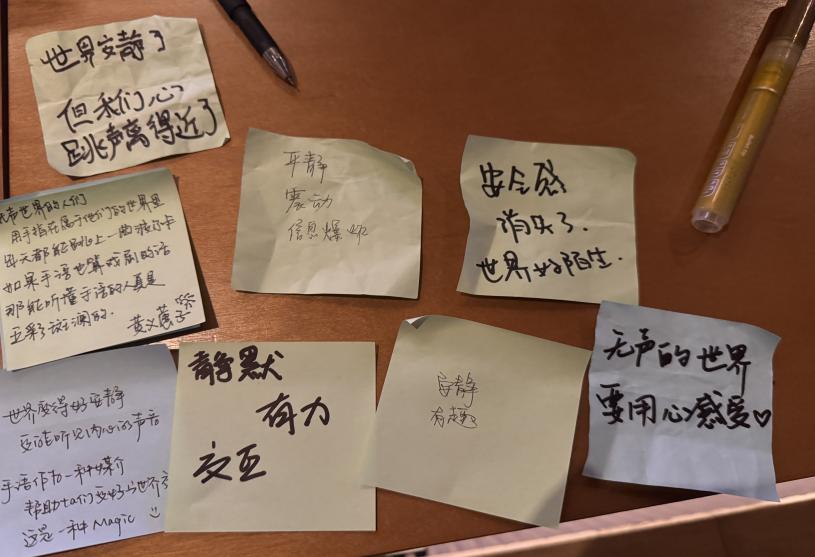 世界安静了
但我们心
跳声离得近了
平静
震动
信息爆炸
安全感
消失了.
世界好陌生.
无声世界的人们
用手指在属于他们的世界里
每天都能跳上一曲
如果手语也算戏剧的话
那能听懂手语的人真是
五彩斑斓的.
静默
有力
交互
安静
有趣
无声的世界
要用心感受♡
世界变得好安静
更能听见内心的声音
手语作为一种媒介
帮助ta们更好与世界
这是一种 Magic